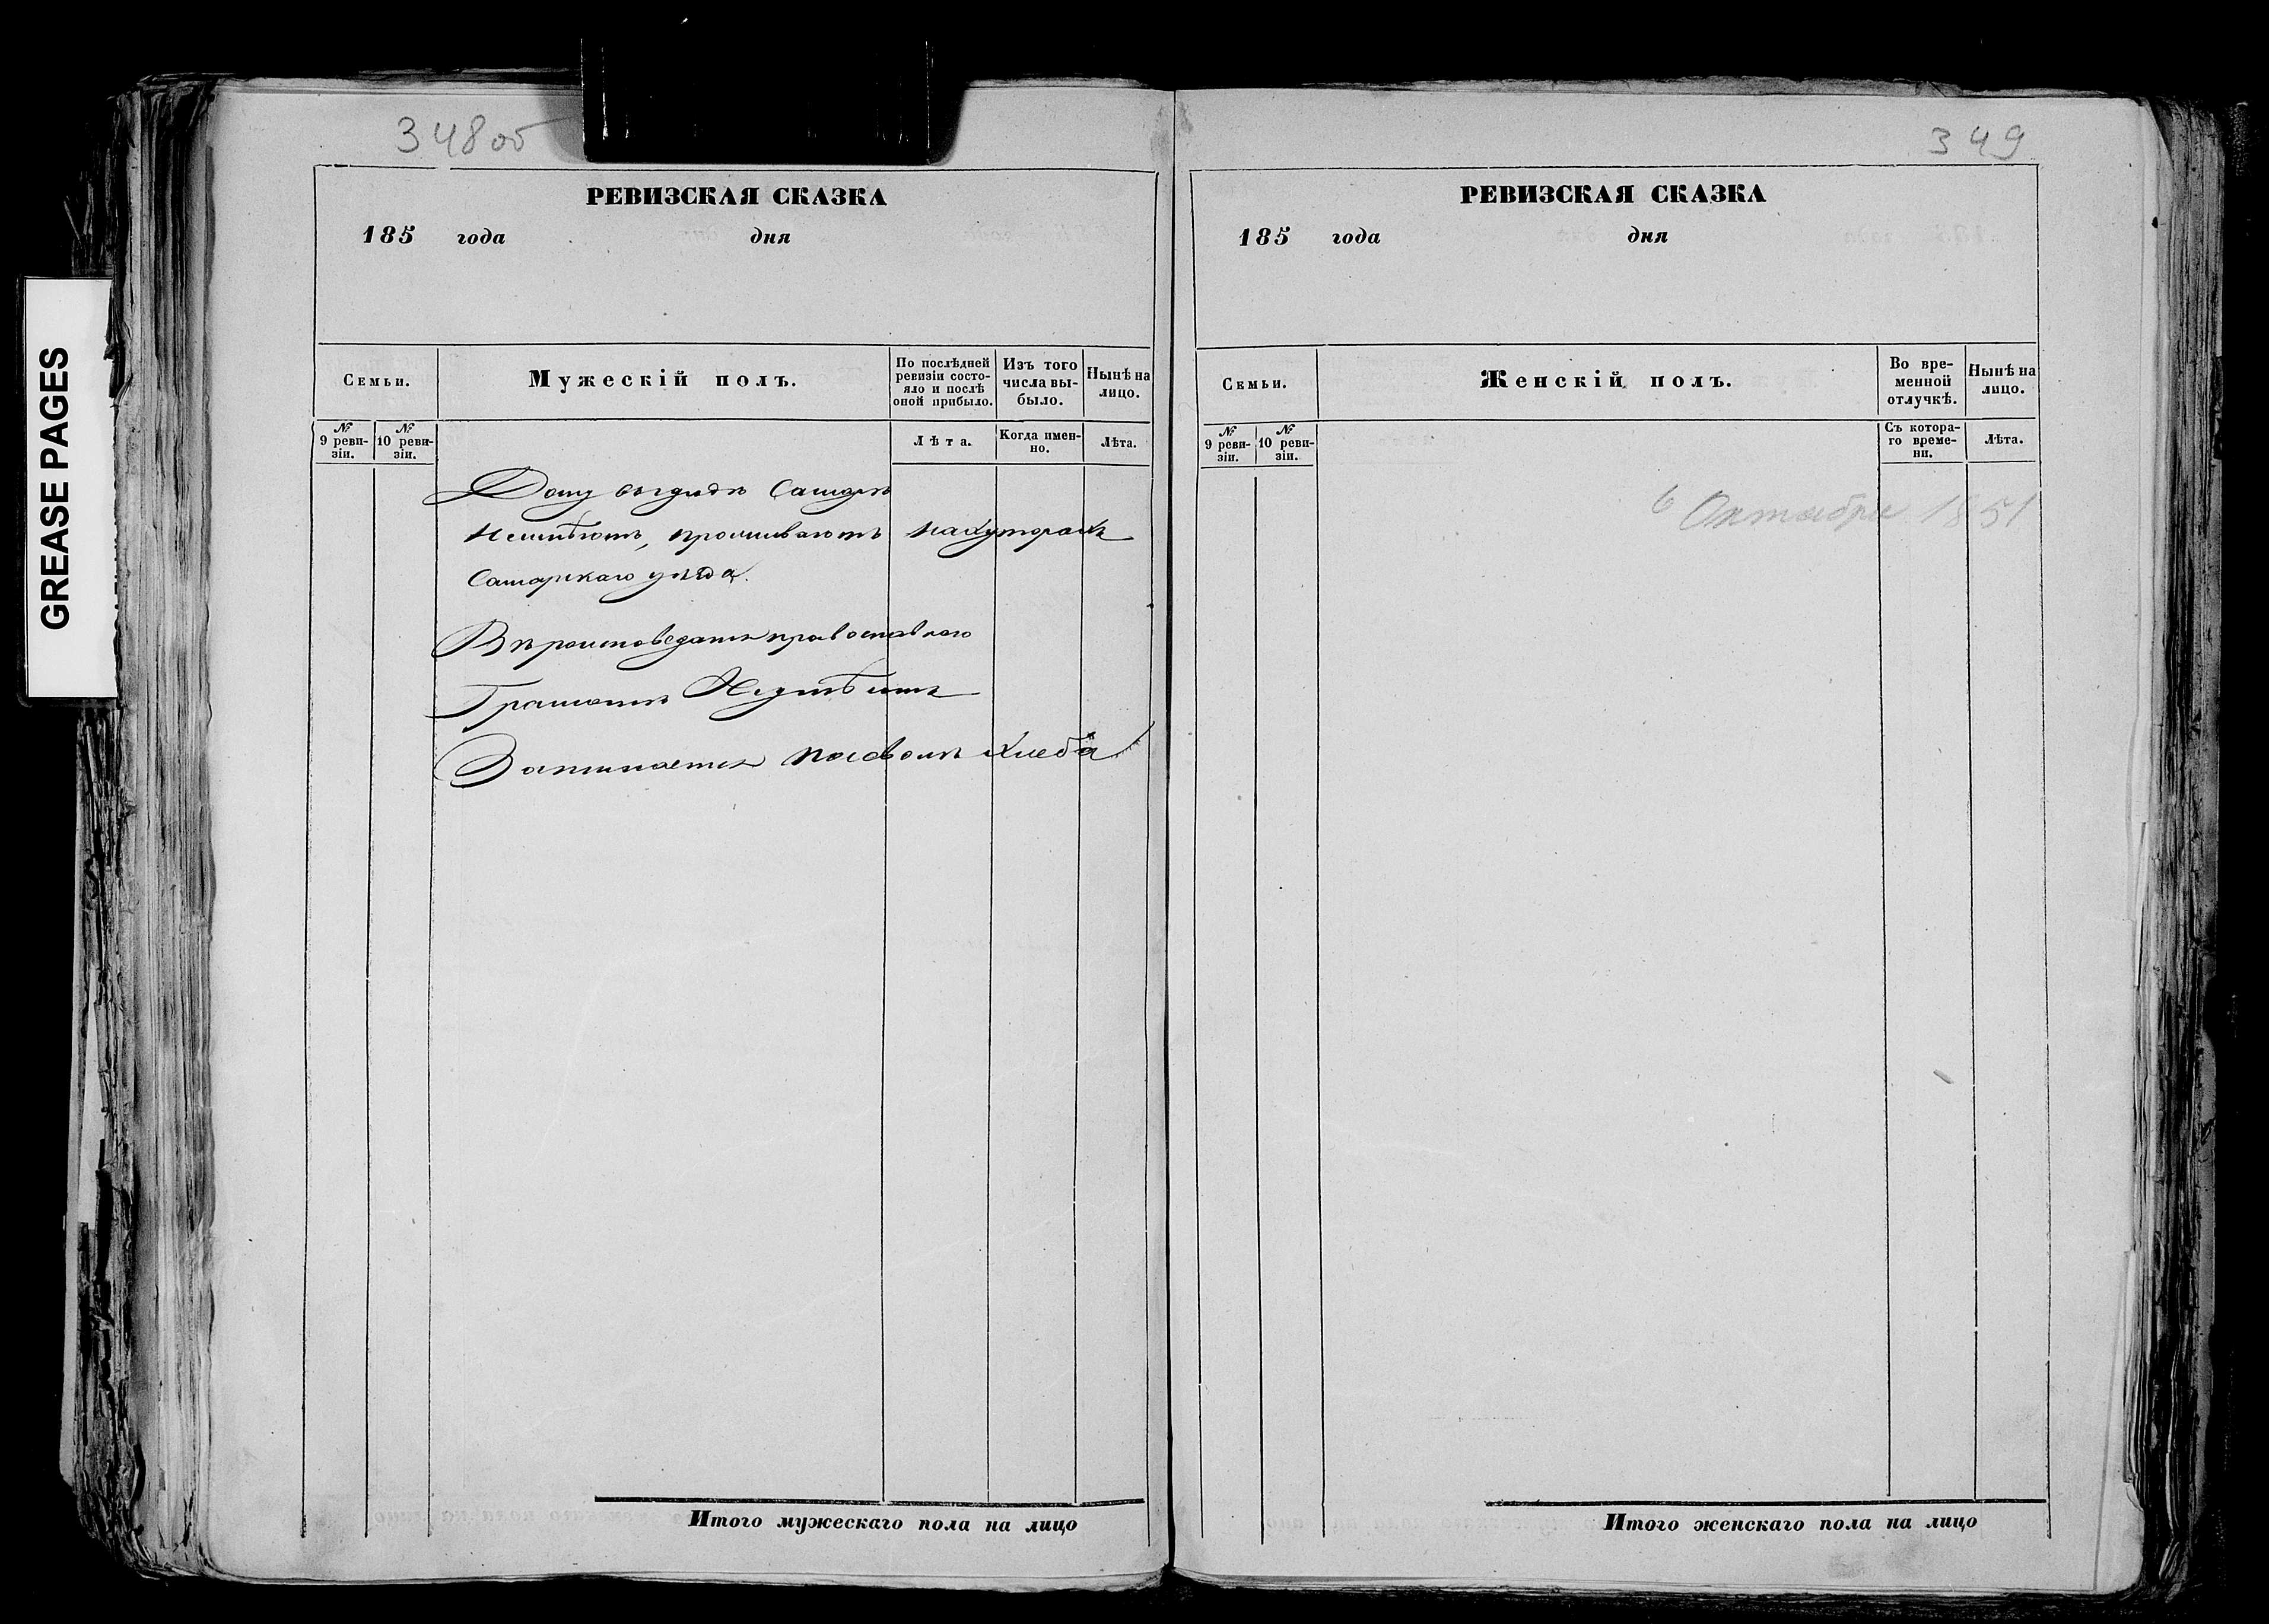 GREASE PAGES
348об
РЕВИЗСКАЯ СКАЗКА
185 года дня
Семьи.
Мужескій полъ.
По послѣдней
ревизіи состо-
яло и послѣ
оной прибыло.
Изъ того
числа вы-
было.
Нынѣ на
лицо.
№
9 реви-
зіи.
№
10 реви-
зіи.
Лѣта.
Когда имен-
но.
Лѣта.
Дому въ городѣ Самарѣ
неимѣютъ, проживаютъ нахуторахъ
Самарскаго уѣзда.
Вѣроисповеданія православнаго
Грамотѣ Неумѣютъ
Занимается посѣвомъ хлеба
Итого мужескаго пола на лицо
349
РЕВИЗСКАЯ СКАЗКА
185 года дня
Семьи.
Женскій полъ.
Во вре-
менной
отлучкѣ.
Нынѣ на
лицо.
№
9 реви-
зіи.
№
10 реви-
зіи.
Съ котора-
го време-
ни.
Лѣта.
6 Октября 1851
Итого женскаго пола на лицо